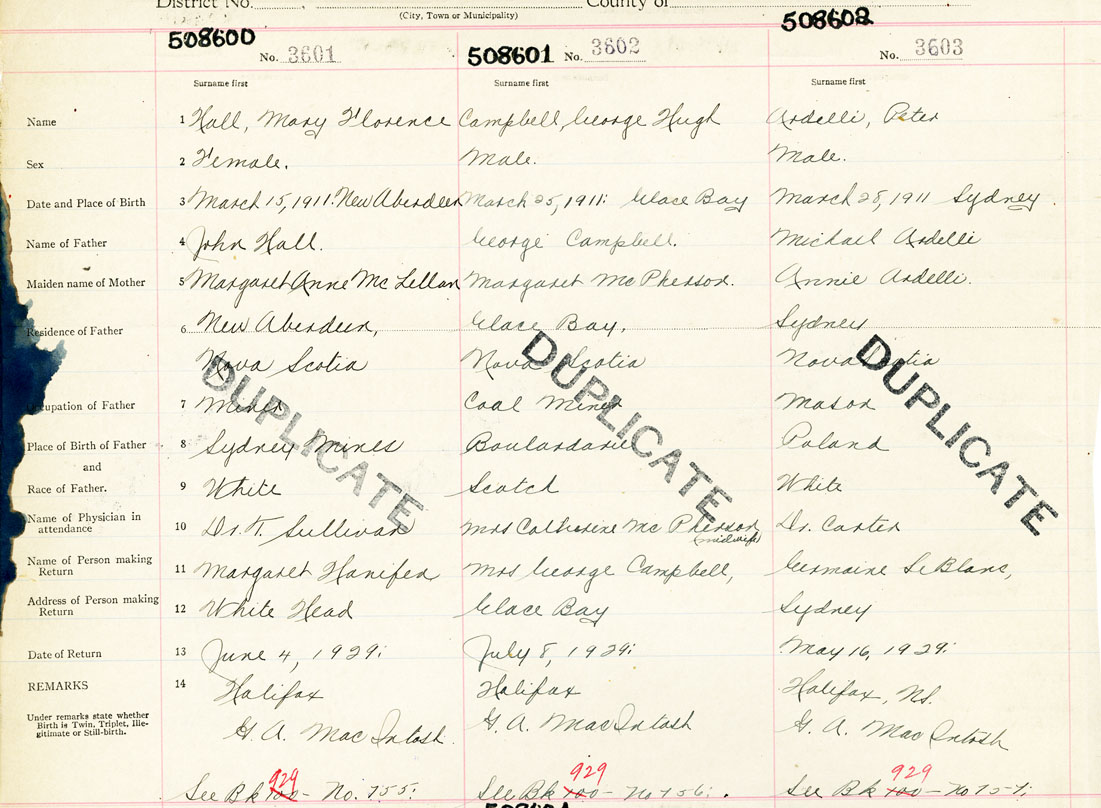 District No. County of
(City, Town or Municipality)
508600 508601 508602
No. 3601 No. 3602 No. 3603
Surname first Surname first Surname first
Name 1 Hall, Mary Florence Campbell, George Hugh Ardelli, Peter
Sex 2 Female. Male. Male.
Date and Place of Birth 3 March 15, 1911: New Aberdeen March 25, 1911: Glace Bay March 28, 1911 Sydney.
Name of Father 4 John Hall. George Campbell. Michael Ardelli
Maiden name of Mother 5 Margaret Anne McLellan Margaret McPherson. Annie Ardelli.
Residence of Father 6 New Aberdeen, Glace Bay, Sydney
Nova Scotia Nova Scotia Nova Scotia
DUPLICATE DUPLICATE DUPLICATE
Occupation of Father 7 Miner Coal Miner Mason
Place of Birth of Father 8 Sydney Mines Boulardarie Poland
and
Race of Father. 9 White Scotch White
Name of Physician in
attendance 10 Dr. Sullivan Mrs Catherine McPherson Dr. Carter
(midwife)
Name of Person making
Return 11 Margaret Hanifen Mrs George Campbell, Germaine LeBlanc,
Address of Person making
Return 12 White Head Glace Bay Sydney
Date of Return 13 June 4, 1929: July 8, 1929: May 16, 1929:
REMARKS 14 Halifax Halifax Halifax, NS.
Under remarks state whether
Birth is Twin, Triplet, Ille-
gitimate or Still-birth.
G. A. MacIntosh. G. A. MacIntosh G. A. MacIntosh
929 929 929
See Bk 100 - No. 755: See Bk 100 - No 756: See Bk 100 - No 757: